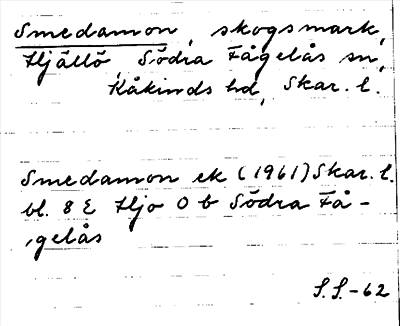 Smedamon, skogsmark,
Hjällö, Södra Fågelås sn,
Kåkinds hd, Skar. l.
Smedamon ek (1961) Skar. l.
bl. 8 E Hjo O b Södra Få-
gelås
S.S.-62